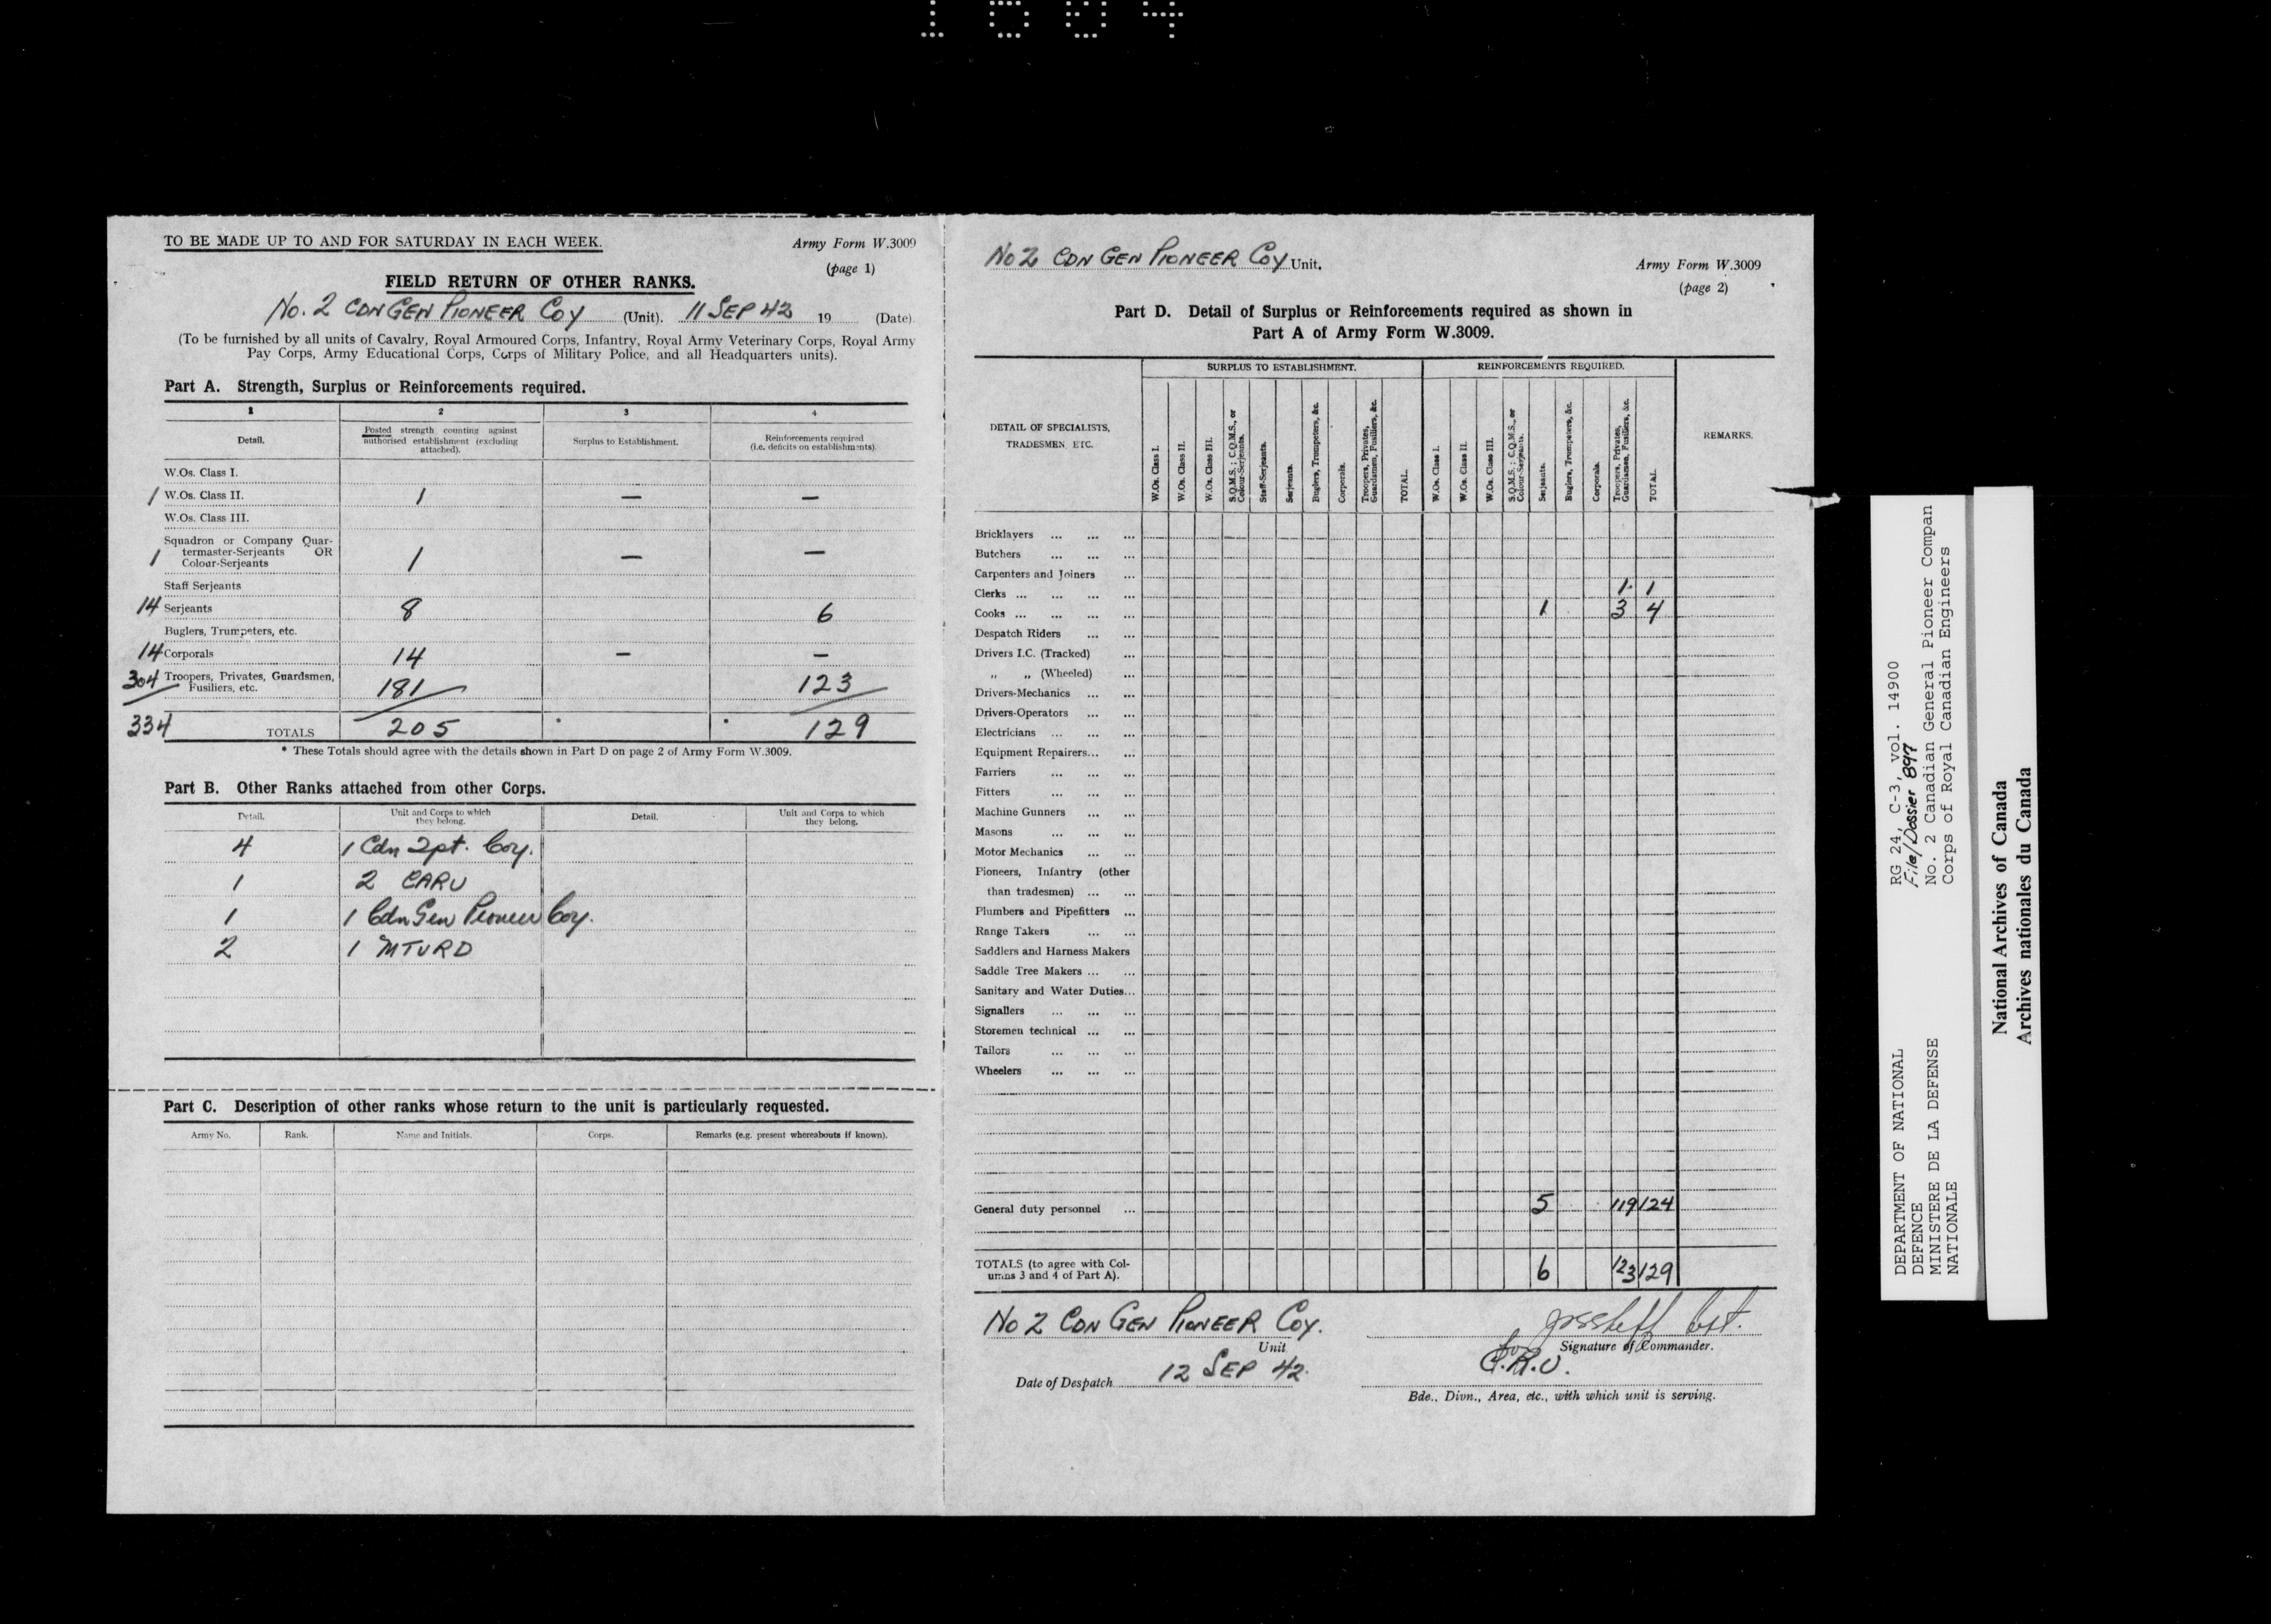 1604
TO BE MADE UP TO AND FOR SATURDAY IN EACH WEEK.
Army Form W.3009
(page 1)
FIELD RETURN OF OTHER RANKS.
No. 2 CDN GEN PIONEER COY (Unit). 11 SEP 42 19 (Date)
(To be furnished by all units of Cavalry, Royal Armoured Corps, Infantry, Royal Army Veterinary Corps, Royal Army
Pay Corps, Army Educational Corps, Corps of Military Police, and all Headquarters units).
Part A. Strength, Surplus or Reinforcements required.
1 2 3 4
Detail.
Posted strength counting against
authorised establishment (excluding
attached).
Surplus to Establishment.
Reinforcements required
(i.e. deficits on establishments).
W.Os. Class I.
1 W.Os. Class II. 1 — —
W.Os. Class III.
Squadron or Company Quar-
termaster-Serjeants OR
1 Colour-Serjeants 1 — —
Staff Serjeants
14 Serjeants 8 6
Buglers, Trumpeters, etc.
14 Corporals 14 — —
304 Troopers, Privates, Guardsmen,
Fusiliers, etc. 181 123
334 TOTALS 205 * * 129
* These Totals should agree with the details shown in Part D on page 2 of Army Form W.3009.
Part B. Other Ranks attached from other Corps.
Detail.
Unit and Corps to which
they belong.
Detail.
Unit and Corps to which
they belong.
4 1 Cdn Tpt. Coy.
1 2 CARU
1 1 Cdn Gen Pioneer Coy.
2 1 MTURD
Part C. Description of other ranks whose return to the unit is particularly requested.
Army No. Rank. Name and Initials. Corps. Remarks (e.g. present whereabouts if known).
No 2 CDN GEN PIONEER COY Unit.
Army Form W.3009
(page 2)
Part D. Detail of Surplus or Reinforcements required as shown in
Part A of Army Form W.3009.
DETAIL OF SPECIALISTS,
TRADESMEN, ETC.
SURPLUS TO ESTABLISHMENT.
REINFORCEMENTS REQUIRED.
REMARKS.
W.Os. Class I.
W.Os. Class II.
W.Os. Class III.
S.Q.M.S.; C.Q.M.S., or
Colour-Serjeants.
Staff-Serjeants.
Serjeants.
Buglers, Trumpeters, &c.
Corporals.
Troopers, Privates,
Guardsmen, Fusiliers, &c.
TOTAL.
W.Os. Class I.
W.Os. Class II.
W.Os. Class III.
S.Q.M.S.; C.Q.M.S., or
Colour-Serjeants.
Serjeants.
Buglers, Trumpeters, &c.
Corporals.
Troopers, Privates,
Guardsmen, Fusiliers, &c.
TOTAL.
Bricklayers ... ... ...
Butchers ... ... ...
Carpenters and Joiners ...
Clerks ... ... ... ... 1 1
Cooks ... ... ... ... 1 3 4
Despatch Riders ... ...
Drivers I.C. (Tracked) ...
" " (Wheeled) ...
Drivers-Mechanics ... ...
Drivers-Operators ... ...
Electricians ... ... ...
Equipment Repairers... ...
Farriers ... ... ...
Fitters ... ... ...
Machine Gunners ... ...
Masons ... ... ...
Motor Mechanics ... ...
Pioneers, Infantry (other
than tradesmen) ... ...
Plumbers and Pipefitters ...
Range Takers ... ...
Saddlers and Harness Makers
Saddle Tree Makers ... ...
Sanitary and Water Duties...
Signallers ... ... ...
Storemen technical ... ...
Tailors ... ... ...
Wheelers ... ... ...
General duty personnel ... 5 119 124
TOTALS (to agree with Col-
umns 3 and 4 of Part A). 6 123 129
No 2 CDN GEN PIONEER COY.
Unit
Signature of Commander.
Date of Despatch 12 SEP 42.
C.R.U.
Bde., Divn., Area, etc., with which unit is serving.
DEPARTMENT OF NATIONAL
DEFENCE
MINISTERE DE LA DEFENSE
NATIONALE
RG 24, C-3, vol. 14900
File/Dossier 897
No. 2 Canadian General Pioneer Compan
Corps of Royal Canadian Engineers
National Archives of Canada
Archives nationales du Canada